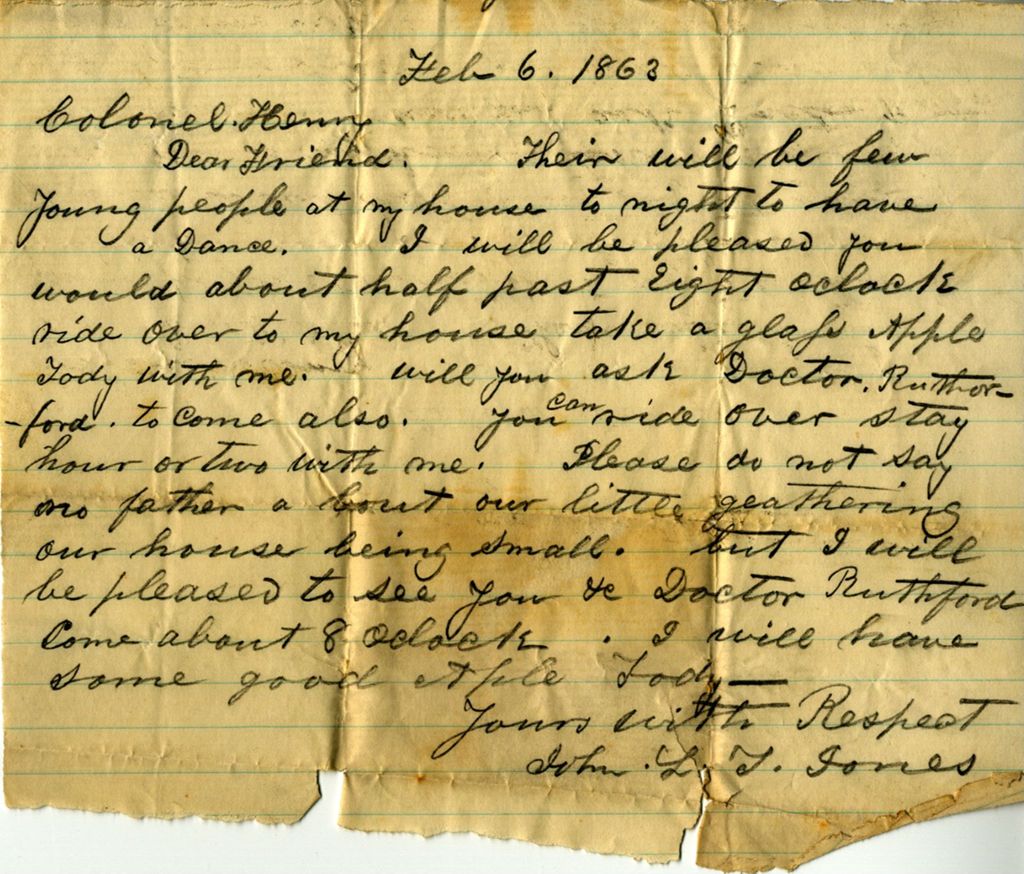 Feb 6. 1863
Colonel. Henry
Dear Friend. Their will be few
Young people at my house to night to have
a Dance. I will be pleased you
would about half past Eight oclock
ride over to my house take a glass Apple
Tody with me. will you ask Doctor. Ruthor-
-ford. to Come also. you can ride over stay
hour or two with me. Please do not say
no father a bout our little geathering
our house being small. but I will
be pleased to see you & Doctor Ruthford
Come about 8 Oclock. I will have
some good Aple Tody —
Yours with Respect
John. L. T. Jones